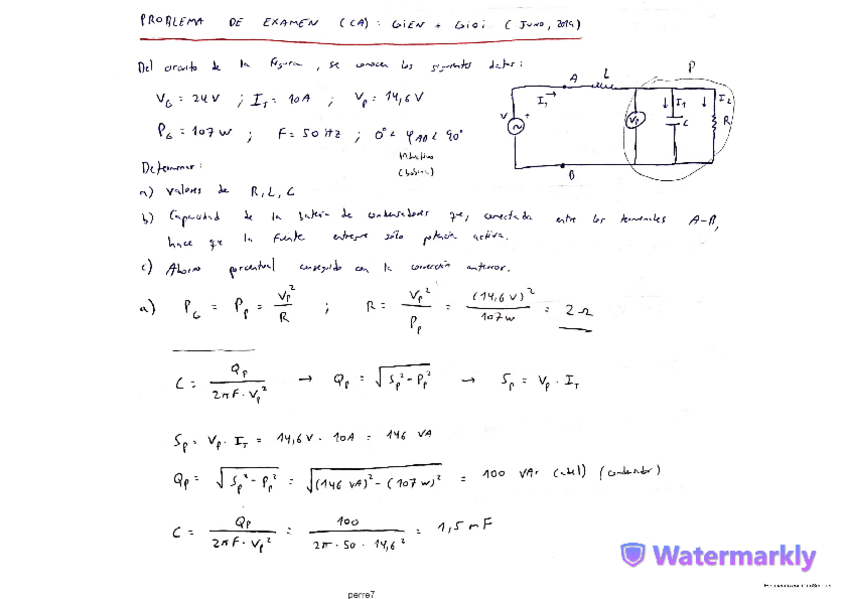 PROBLEMA DE EXAMEN (CA): GIEN + GIOI (JUNIO, 2019)
Del circuito de la figura, se conocen los siguientes datos:
V_G = 24 V ; I_T = 10A ; V_P = 14,6 V
P_G = 107 W ; F = 50 Hz ; 0° < φ_AB < 90°
inductivo
Determinar:
a) Valores de R, L, C
b) Capacidad de la batería de condensadores que, conectada entre los terminales A-B,
hace que la fuente entregue sólo potencia activa.
c) Ahorro porcentual conseguido con la corrección anterior.
A L P
I_T → I_1 I_2
V + V_P C R
B
a) P_G = P_P = V_P² / R ; R = V_P² / P_P = (14,6 V)² / 107 W = 2 Ω
C = Q_P / 2πF·V_P² → Q_P = √(S_P² - P_P²) → S_P = V_P · I_T
S_P = V_P · I_T = 14,6 V · 10A = 146 VA
Q_P = √(S_P² - P_P²) = √((146 VA)² - (107 W)²) = 100 VAr (condensador)
C = Q_P / 2πF·V_P² = 100 / 2π·50·14,6² = 1,5 mF
Watermarkly
perre7